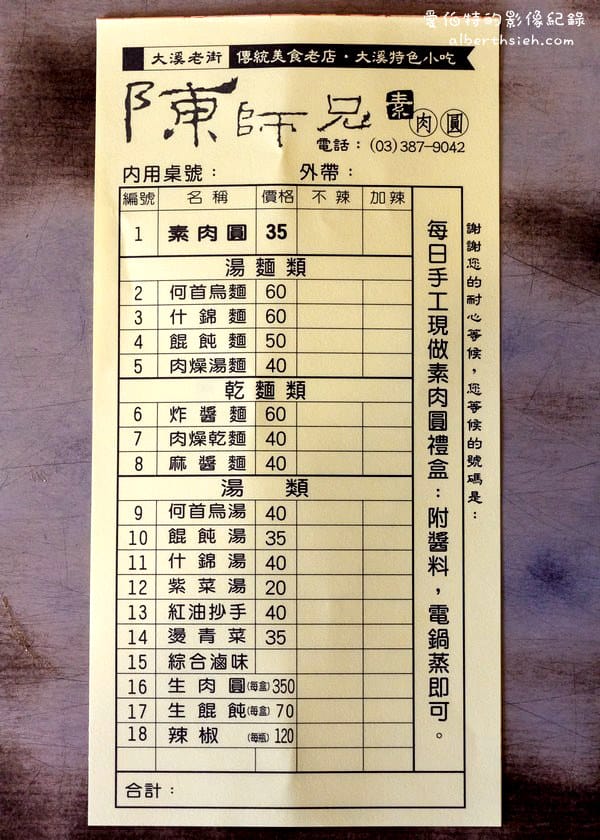 愛伯特的影像紀錄
alberthsieh.com
大溪老街 傳統美食老店・大溪特色小吃
陳師兄 素肉圓
電話：(03)387-9042
內用桌號： 外帶：
編號 名稱 價格 不辣 加辣
1 素肉圓 35
湯麵類
2 何首烏麵 60
3 什錦麵 60
4 餛飩麵 50
5 肉燥湯麵 40
乾麵類
6 炸醬麵 60
7 肉燥乾麵 40
8 麻醬麵 40
湯類
9 何首烏湯 40
10 餛飩湯 35
11 什錦湯 40
12 紫菜湯 20
13 紅油抄手 40
14 燙青菜 35
15 綜合滷味
16 生肉圓(每盒)350
17 生餛飩(每盒)70
18 辣椒(每瓶)120
合計：
每日手工現做素肉圓禮盒：附醬料，電鍋蒸即可。
謝謝您的耐心等候，您等候的號碼是：